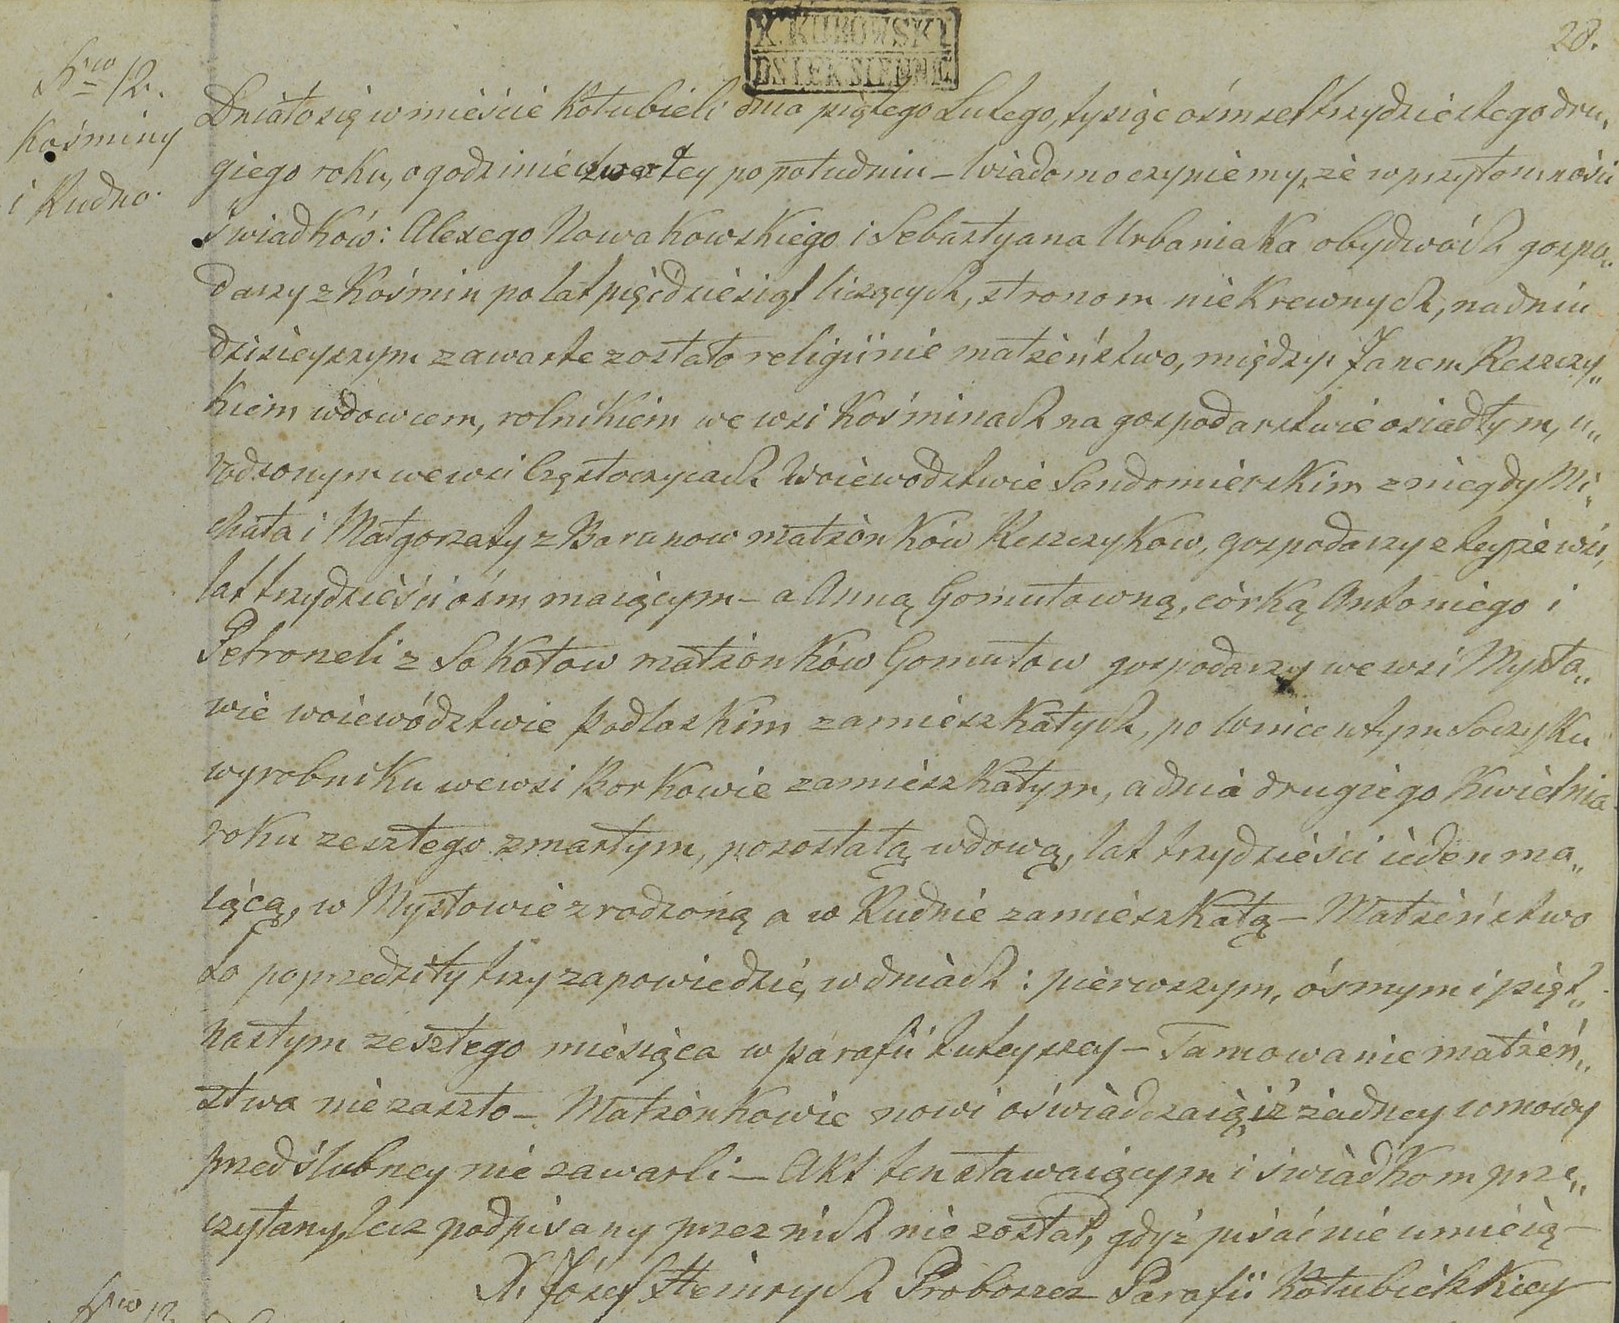 X. KUBOWSKI
DS LEK SIENNIC
28.
Nro 12.
Kośminy
i Rudno.
Działo się w mieście Kołubieli dnia piątego Lutego, tysiąc ośmset trzydziestego dru„
giego roku, o godzinie czwartey po południu – Wiadomo czyniemy, że w przytomności
świadków: Alexego Nowakowskiego i Sebastyana Urbaniaka obydwóch gospo„
darzy z Kośmin po lat pięćdziesiąt liczących, stronom niekrewnych, na dniu
dzisieyszym zawarte zostało religijnie małżeństwo, między Janem Reszczy„
kiem wdowcem, rolnikiem we wsi Kośminach na gospodarstwie osiadłym, u„
rodzonym we wsi Częstoczycach Woiewództwie Sandomierskim z niegdy Mi„
chała i Małgorzaty z Baranow małżonków Reszczyków, gospodarzy z teyże wsi,
lat trzydzieści ośm maiącym – a Anną Gomułowną, córką Antoniego i
Petroneli z Sokołow małżonków Gomułow gospodarzy we wsi Mysło„
wie woiewództwie Podlaskim zamieszkałych, po Wincentym Soczyku
wyrobniku we wsi Borkowie zamieszkałym, a dnia drugiego Kwietnia
roku zeszłego zmarłym, pozostałą wdową, lat trzydzieści ieden ma„
iącą, w Mysłowie zrodzoną a w Rudnie zamieszkałą – Małżeństwo
to poprzedziły trzy zapowiedzie, w dniach: pierwszym, ósmym i pięt„
nastym zeszłego miesiąca w parafii tuteyszey – Tamowanie małżeń„
stwa nie zaszło – Małżonkowie nowi oświadczaią, iż żadney umowy
przedślubney nie zawarli – Akt ten stawaiącym i świadkom prze„
czytany, lecz podpisany przez nich nie został, gdyż pisać nie umieią –
X. Józef Heinrych Proboszcz Parafii Kołubielskiey
Nro 13